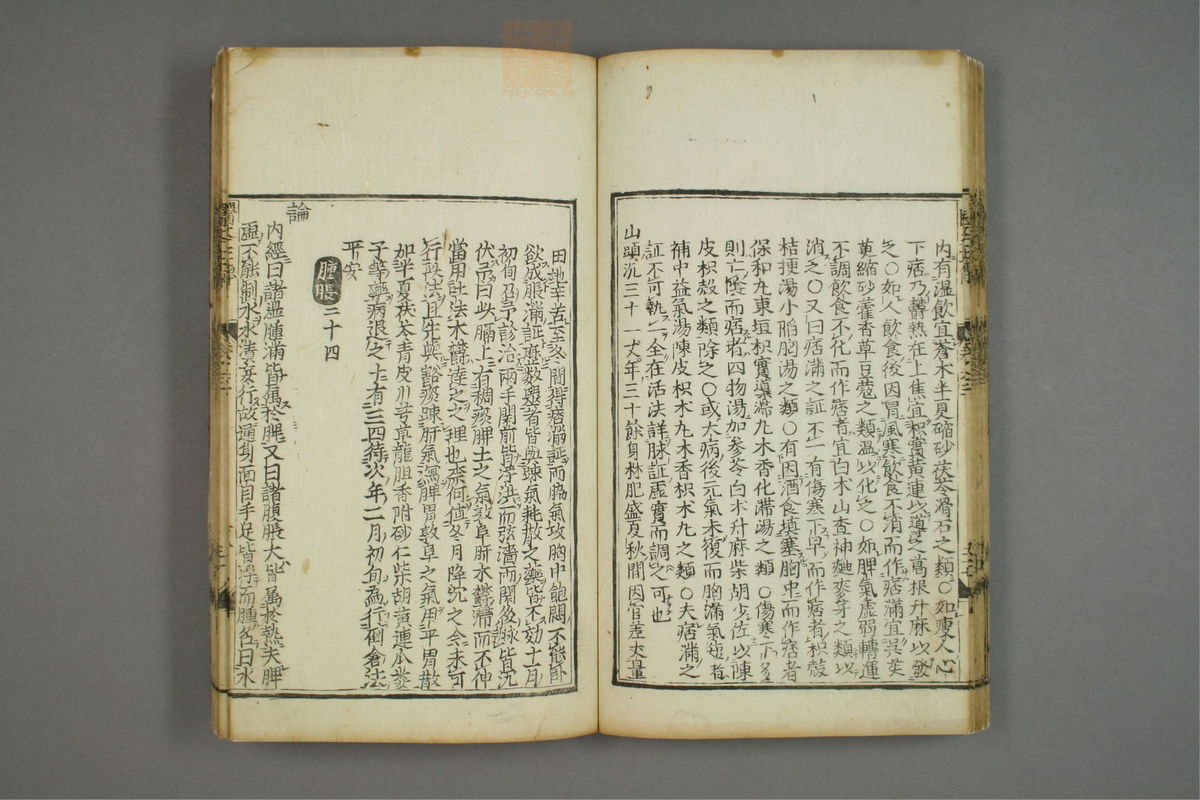 内有湿飲宜蒼朮半夏縮砂茯苓滑石之類○如痩人心
下痞乃欝熱在上焦宜枳實黄連以導之葛根升麻以發
之○如人飲食後因冒風寒飲食不消而作痞滿宜呉茱
萸縮砂藿香草豆蔻之類温以化之○如脾氣虚弱轉運
不調飲食不化而作痞者宜白朮山査神麯麥牙之類以
消之○又曰痞滿之証不一有傷寒下早而作痞者枳殻
桔梗湯小陥胸湯之類○有因酒食填塞胸中而作痞者
保和丸東垣枳實導滞丸木香化滞湯之類○傷寒下多
則亡陰而痞者四物湯加參苓白朮升麻柴胡少佐以陳
皮枳殻之類除之○或大病後元氣未復而胸滿氣短者
補中益氣湯陳皮枳朮丸木香枳朮丸之類○夫痞滿之
証不可執一全在活法詳脉証虚實而調之可也
山頭沉三十一丈年三十餘身材肥盛夏秋間因官差丈量
田地辛苦至冬間得痞滿証而脇氣攻胸中飽悶不能卧
欲成脹滿証歴数醫者皆與疎氣耗散之藥皆不効十一月
初旬召予診治兩手関前皆浮洪而弦濇両関後脉皆沉
伏予曰此膈上有稠痰脾土之氣敦阜肝木欝滞而不伸
當用吐法木欝達之之理也奈何値冬月降沉之令未可
行此法且先與豁痰疎肝氣瀉脾胃敦阜之氣用平胃散
加半夏茯苓青皮川芎草龍胆香附砂仁柴胡黄連瓜蔞
子等藥病退之十有三四待次年二月初旬為行倒倉法
平安
腫脹 二十四
論
内經曰諸湿腫滿皆属於脾又曰諸腹脹大皆属於熱夫脾
虚不能制水水漬妄行故通身面目手足皆浮而腫名曰水